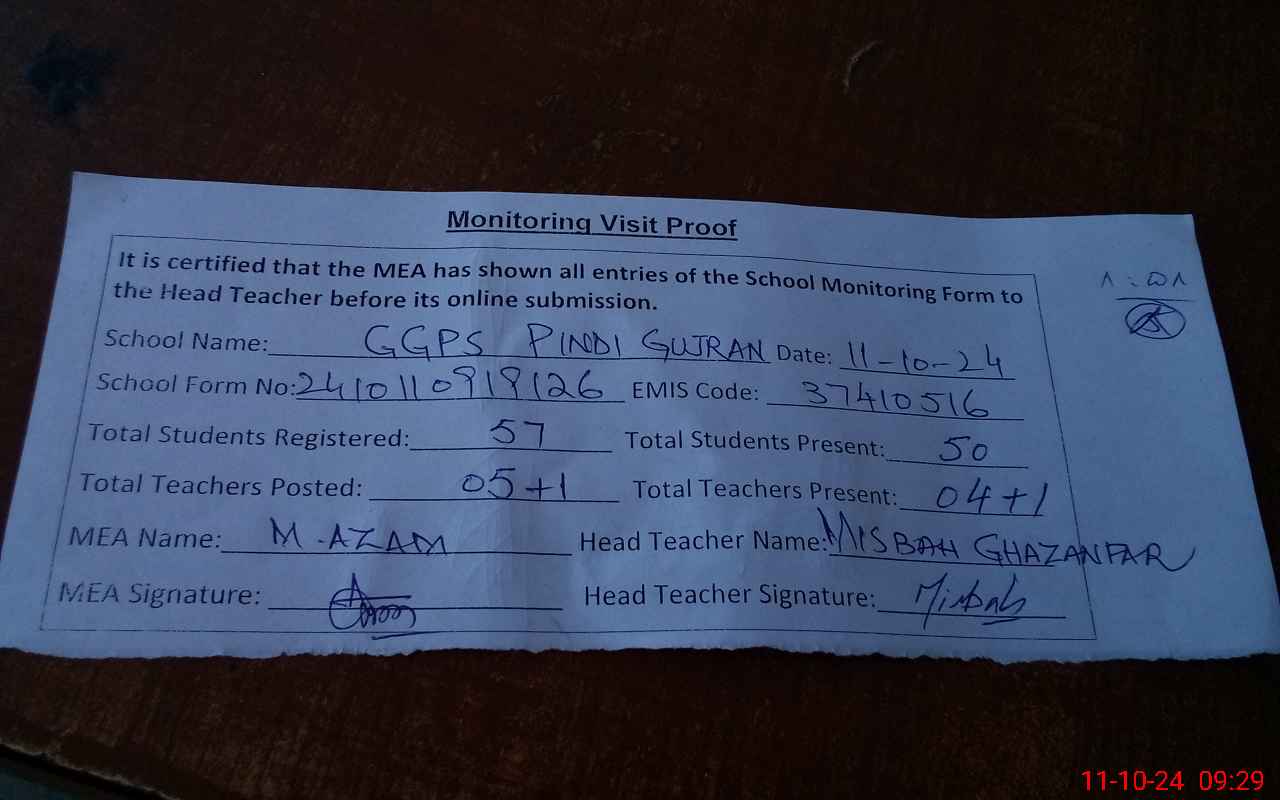 Monitoring Visit Proof
It is certified that the MEA has shown all entries of the School Monitoring Form to
the Head Teacher before its online submission.
۸:۵۸
School Name: GGPS PINDI GUJRAN Date: 11-10-24
School Form No: 2410110919126 EMIS Code: 37410516
Total Students Registered: 57 Total Students Present: 50
Total Teachers Posted: 05+1 Total Teachers Present: 04+1
MEA Name: M.AZAM Head Teacher Name: MISBAH GHAZANFAR
MEA Signature: Head Teacher Signature: Misbah
11-10-24 09:29